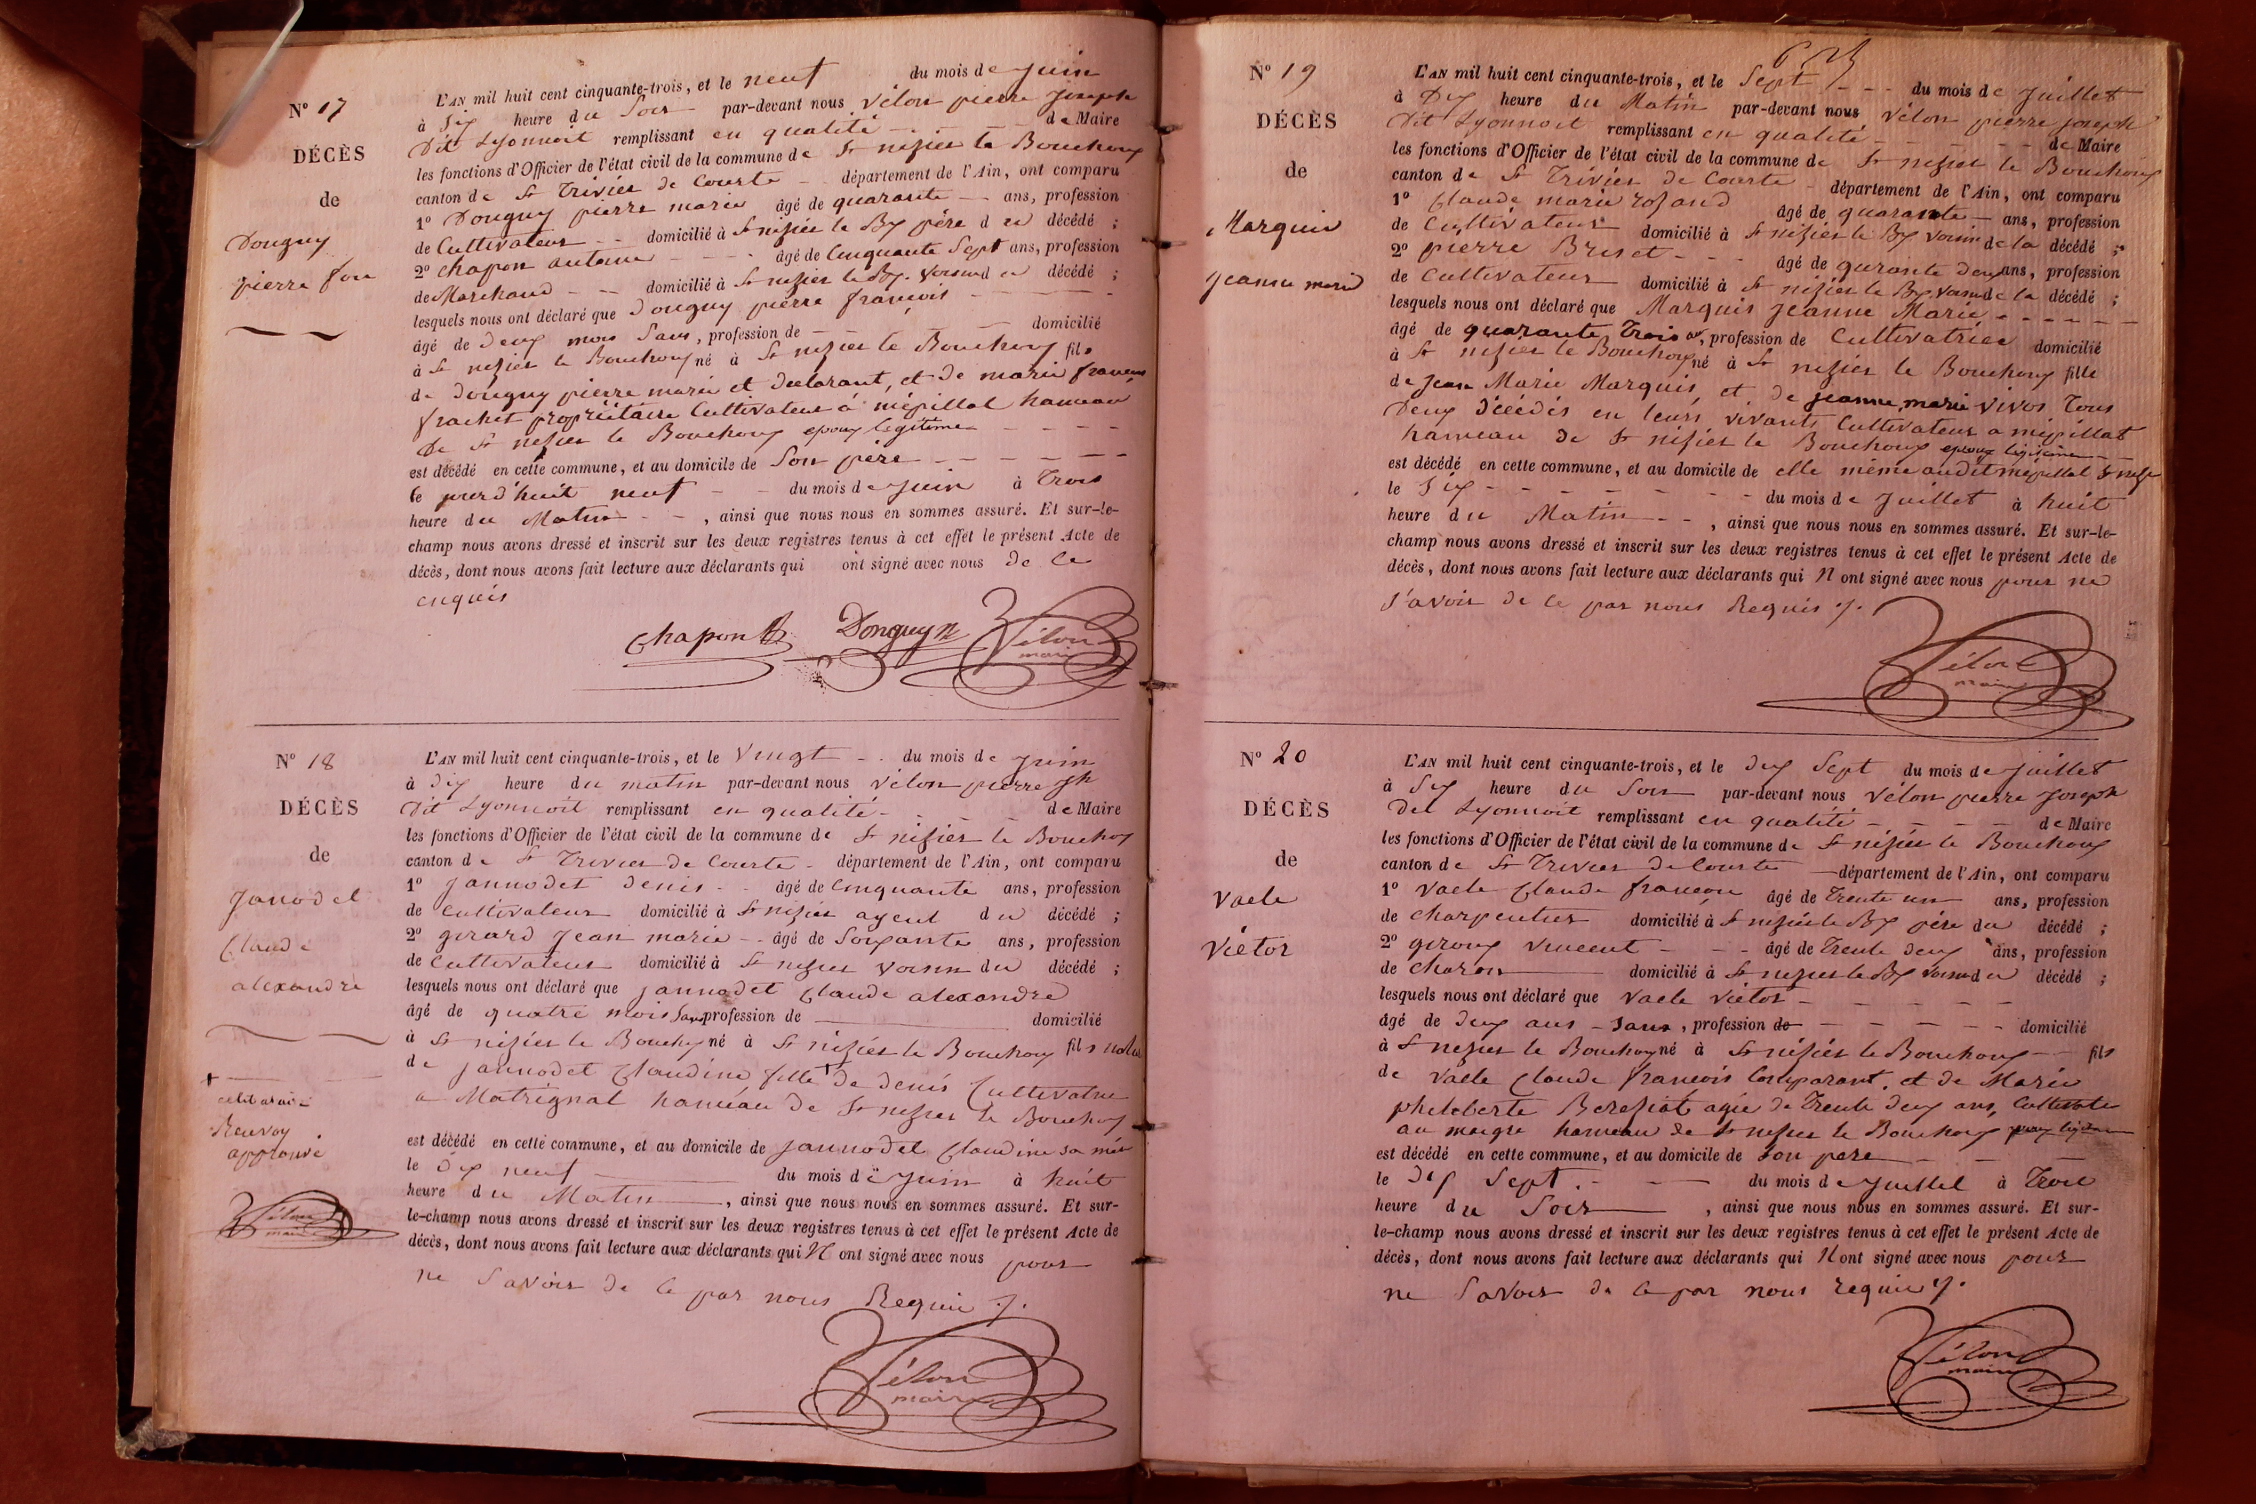 Nº 17
DÉCÈS
de
Donguy
pierre fois
L'AN mil huit cent cinquante-trois, et le neuf du mois de juin
à six heure du Soir par-devant nous Vélon pierre joseph
Dit Lyonnoit remplissant en qualité de Maire
les fonctions d'Officier de l'état civil de la commune de St nizier le Bouchoux
canton de St Trivier de Courte département de l'Ain, ont comparu
1º Donguy pierre marie âgé de quarante ans, profession
de Cultivateur domicilié à St nizier le Bx père du décédé ;
2º chapon antoine âgé de Cinquante Sept ans, profession
de Marchand domicilié à St nizier le Bx. voisin du décédé ;
lesquels nous ont déclaré que Donguy pierre francois
âgé de Deux mois Sans, profession de domicilié
à St nizier le Bouchoux né à St nizier le Bouchoux fils
de Donguy pierre marie et declarant, et de marie francoise
frachet propriétaire Cultivateur à mépillat hameau
De St nizier le Bouchoux epoux légitime
est décédé en cette commune, et au domicile de Son père
le jourd'huit neuf du mois de juin à Trois
heure du Matin, ainsi que nous nous en sommes assuré. Et sur-le-
champ nous avons dressé et inscrit sur les deux registres tenus à cet effet le présent Acte de
décès, dont nous avons fait lecture aux déclarants qui ont signé avec nous de ce
enquis
Chapon Donguy Vélon
maire
Nº 18
DÉCÈS
de
Janodet
Claude
alexandre
L'AN mil huit cent cinquante-trois, et le Vingt du mois de juin
à dix heure du matin par-devant nous Vélon pierre jph
Dit Lyonnoit remplissant en qualité de Maire
les fonctions d'Officier de l'état civil de la commune de St nizier le Bouchoux
canton de St Trivier de Courte département de l'Ain, ont comparu
1º Jannodet denis âgé de Cinquante ans, profession
de Cultivateur domicilié à St nizier ayeul du décédé ;
2º girard jean marie âgé de Soixante ans, profession
de Cultivateur domicilié à St nizier voisin du décédé ;
lesquels nous ont déclaré que jannodet Claude alexandre
âgé de quatre mois Sans profession de domicilié
à St nizier le Bouchoux né à St nizier le Bouchoux fils
de jannodet Claudine fille + de denis Cultivatrice
a Matrignat haméau de St nizier le Bouchoux
est décédé en cette commune, et au domicile de jannodet Claudine sa mère
le dix neuf du mois de juin à huit
heure du Matin, ainsi que nous nous en sommes assuré. Et sur-
le-champ nous avons dressé et inscrit sur les deux registres tenus à cet effet le présent Acte de
décès, dont nous avons fait lecture aux déclarants qui N ont signé avec nous pour
ne Savoir de ce par nous Requis ./.
Vélon
maire
+
celibataire
Renvoy
approuvé
Vélon
maire
Nº 19
DÉCÈS
de
Marquis
jeanne marie
L'AN mil huit cent cinquante-trois, et le Sept du mois de juillet
à Dix heure du Matin par-devant nous Vélon pierre joseph
Dit Lyonnoit remplissant en qualité de Maire
les fonctions d'Officier de l'état civil de la commune de St nizier le Bouchoux
canton de St Trivier de Courte département de l'Ain, ont comparu
1º Claude marie rozand âgé de quarante ans, profession
de Cultivateur domicilié à St nizier le Bx voisin de la décédé ;
2º pierre Briset âgé de qurante deux ans, profession
de Cultivateur domicilié à St nizier le Bx voisin de la décédé ;
lesquels nous ont déclaré que Marquis jeanne Marie
âgé de quarante trois ans, profession de Cultivatrice domicilié
à St nizier le Bouchoux né à St nizier le Bouchoux fille
de jean Marie Marquis, et de jeanne marie vivos Tous
Deux décédés en leurs vivants Cultivateur a mépillat
hameau de St nizier le Bouchoux epoux légitime
est décédé en cette commune, et au domicile de elle même audit mépillat St nizier
le Six du mois de juillet à huit
heure du Matin, ainsi que nous nous en sommes assuré. Et sur-le-
champ nous avons dressé et inscrit sur les deux registres tenus à cet effet le présent Acte de
décès, dont nous avons fait lecture aux déclarants qui N ont signé avec nous pour ne
s'avoir de ce par nous Requis ./.
Vélon
maire
Nº 20
DÉCÈS
de
Vaele
Viétor
L'AN mil huit cent cinquante-trois, et le dix Sept du mois de juillet
à Six heure du Soir par-devant nous Vélon pierre joseph
Dit Lyonnoit remplissant en qualité de Maire
les fonctions d'Officier de l'état civil de la commune de St nizier le Bouchoux
canton de St Trivier de Courte département de l'Ain, ont comparu
1º Vaele Claude francois âgé de Trente un ans, profession
de charpentier domicilié à St nizier le Bx père du décédé ;
2º giroux vincent âgé de Trente deux ans, profession
de charon domicilié à St nizier le Bx voisin du décédé ;
lesquels nous ont déclaré que Vaele Viétor
âgé de deux ans Sans, profession de domicilié
à St nizier le Bouchoux né à St nizier le Bouchoux fils
de Vaele Claude francois Comparant. et de Marie
philiberte Bereziat agée de Trente deux ans,
au maigre hameau de St nizier le Bouchoux
est décédé en cette commune, et au domicile de Son pere
le Dix Sept. du mois de juillet à Trois
heure du Soir, ainsi que nous nous en sommes assuré. Et sur-
le-champ nous avons dressé et inscrit sur les deux registres tenus à cet effet le présent Acte de
décès, dont nous avons fait lecture aux déclarants qui N ont signé avec nous pour
ne Savoir de ce par nous requis ./.
Vélon
maire